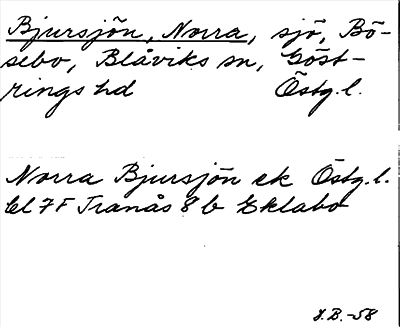 Bjursjön, Norra, sjö, Bö-
sebo, Blåviks sn, Göst-
rings hd Östg.l.
Norra Bjursjön ek Östg.l.
bl 7F Tranås 8b Eklabo
J.B.-58